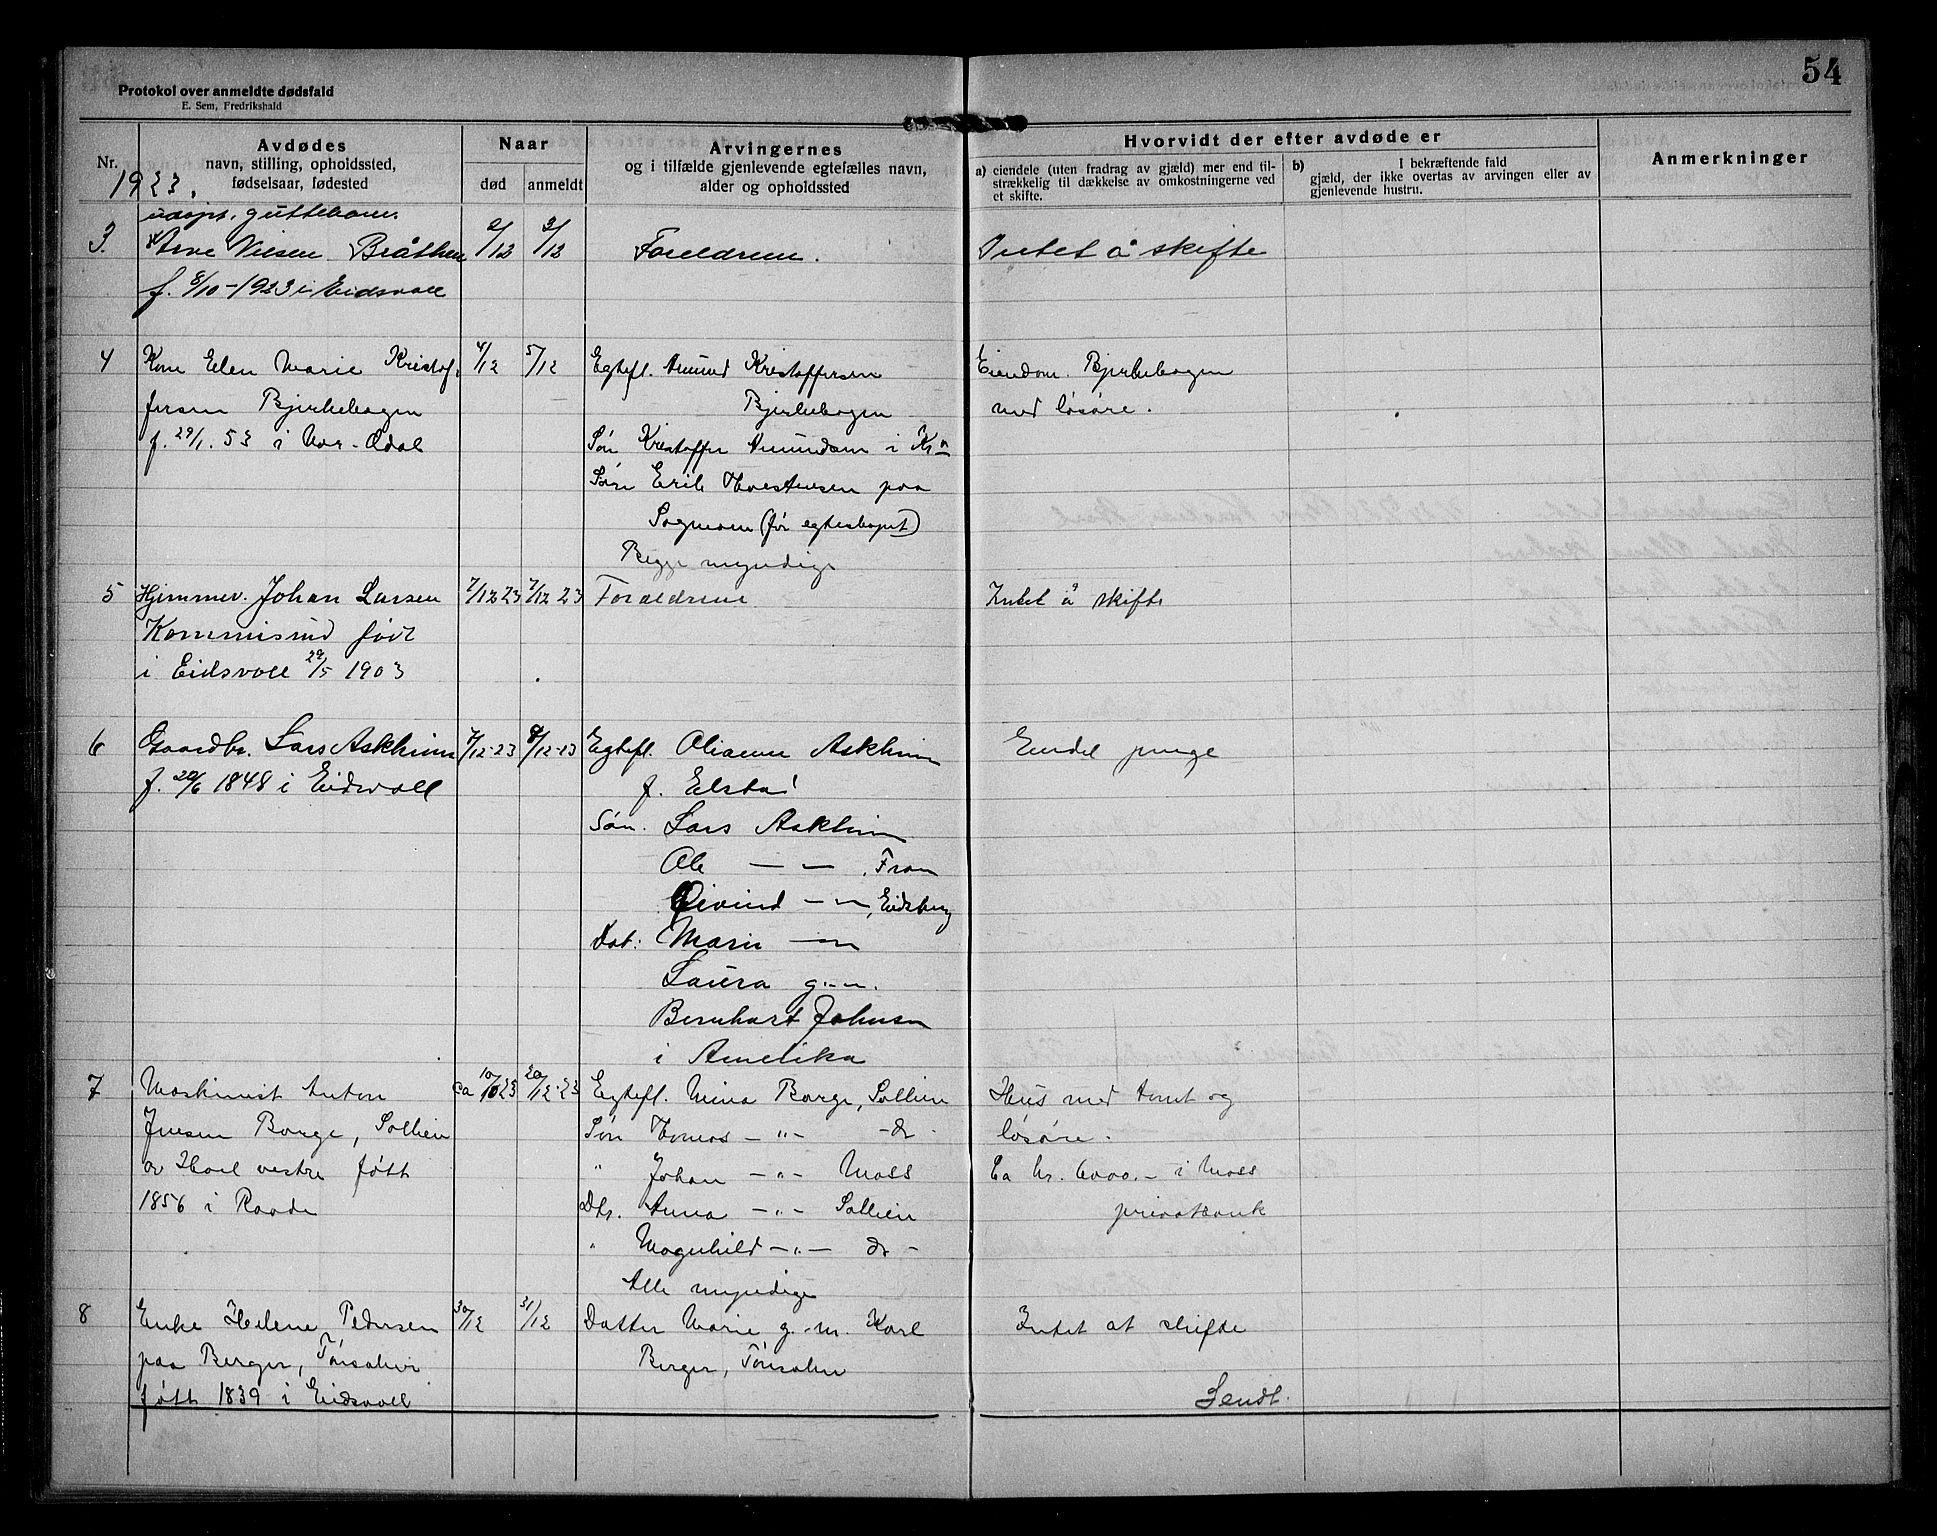 54
Protokol over anmeldte dødsfald
E. Sem, Fredrikshald
Nr.
Avdødes
navn, stilling, opholdssted,
fødselsaar, fødested
1923.
Naar
død
anmeldt
Arvingernes
og i tilfælde gjenlevende egtefælles navn,
alder og opholdssted
Hvorvidt der efter avdøde er
a) eiendele (uten fradrag av gjæld) mer end til-
strækkelig til dækkelse av omkostningerne ved
et skifte.
b) I bekræftende fald
gjæld, der ikke overtas av arvingen eller av
gjenlevende hustru.
Anmerkninger
guttebarn
3. Arve Bråthen 2/12 3/12 Foreldrene. Intet å skifte
f. 8/10-1923 i Eidsvoll
4 Kone Elen Marie Kristof- 4/12 5/12 Egtefl. Amund Kristoffersen Eiendom Bjerkehagen
fersen Bjerkehagen Bjerkehagen med løsøre.
f. 29/1. 53 i Nor-Odal Søn Kristoffer Amundsen i Kr a
Søn Erik Torstensen paa
(før egteskapet)
Begge myndige
5 Hjemmev. Johan Larsen 7/12 23 7/12 23 Foreldrene Intet å skifte
Kommisrud født
i Eidsvoll 29/5 1903
6 Gaardbr. Lars Askheim 7/12-23 8/12-23 Egtefl. Oliane Askheim Endel penge
f. 20/6 1848 i Eidsvoll f. Elstad
Søn. Lars Askheim
Ole — — , Fron
Øivind — — , Eidsberg
Dat: Marie — —
Laura g.m.
Bernhart Johnsen
i Amerika
7 Maskinist Anton ca 10/10 23 20/12-23 Egtefl. Mina Borge, Sollien Hus med tomt og
Jensen Borge, Sollien Søn Tomas — " — do løsøre.
av Hoel vestre født " Johan — " — Moss Ca kr. 6000.- i Moss
1856 i Raade Dtr. Anna — " — Sollien privatbank
" Magnhild — " — do -
Alle myndige
8 Enke Helene Pedersen 30/12 31/12 Datter Marie g. m. Karl Intet at skifte
paa Berger, Berger,
født 1839 i Eidsvoll Sendt.